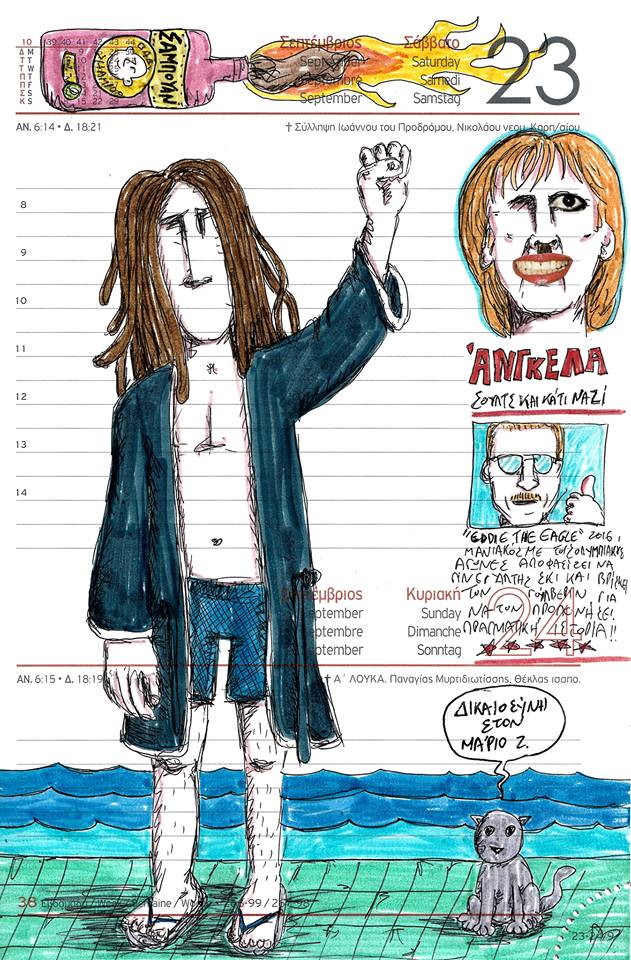 ΣΑΜΠΟΥΑΝ
10
39 40 41 42 43 44
Σεπτέμβριος Σάββατο
September Saturday
Septembre Samedi
September Samstag
23
ΑΝ. 6:14 • Δ. 18:21
† Σύλληψη Ιωάννου του Προδρόμου, Νικολάου νεομ. Καρπ/σίου
8
9
10
11
12
13
14
ΆΝΓΚΕΛΑ
ΣΟΥΛΤΣ ΚΑΙ ΚΑΤΙ ΝΑΖΙ
"EDDIE THE EAGLE" 2016,
ΜΑΝΙΑΚΟΣ ΜΕ ΤΟΥΣ ΟΛΥΜΠΙΑΚΟΥΣ
ΑΓΩΝΕΣ ΑΠΟΦΑΣΙΖΕΙ ΝΑ
ΓΙΝΕΙ ΣΚΙ ΚΑΙ ΒΡΙΣΚΕΙ
ΤΟΝ ΓΟΥΛΒΕΡΙΝ ΓΙΑ
ΝΑ ΤΟΝ ΠΡΟΠΟΝΗΣΕΙ.
ΠΡΑΓΜΑΤΙΚΗ ΙΣΤΟΡΙΑ!!
Σεπτέμβριος Κυριακή
September Sunday
Septembre Dimanche
September Sonntag
24
ΑΝ. 6:15 • Δ. 18:19
† Α΄ ΛΟΥΚΑ. Παναγίας Μυρτιδιωτίσσης, Θέκλας ισαπο.
ΔΙΚΑΙΟΣΥΝΗ
ΣΤΟΝ
ΜΑΡΙΟ Ζ.
38 Εβδομάδα / Week / Semaine / Woche